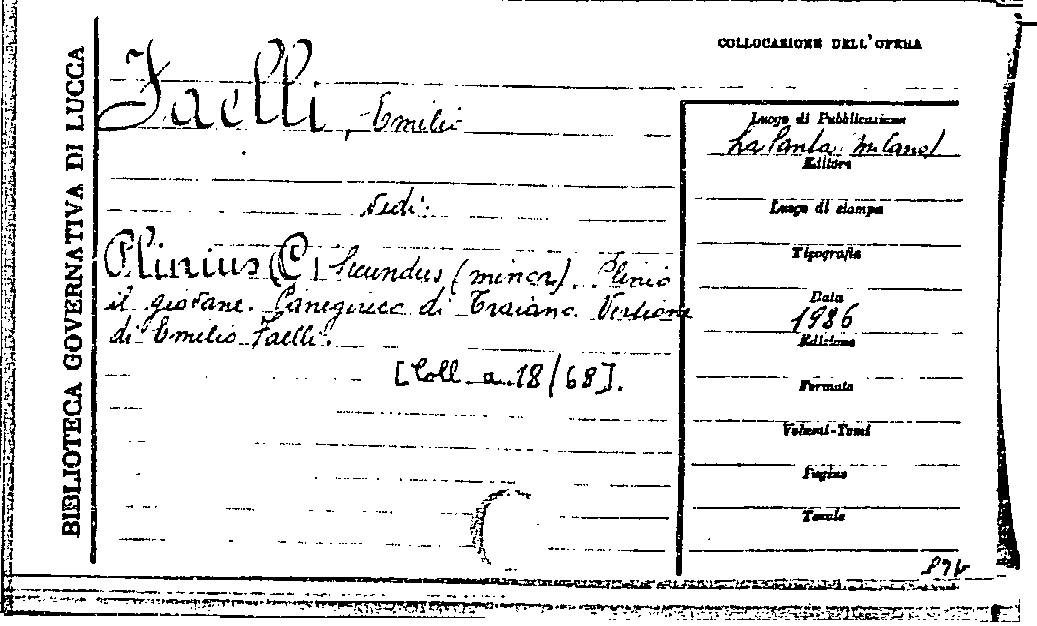 BIBLIOTECA GOVERNATIVA DI LUCCA
COLLOCAZIONE DELL'OPERA
Faelli, Emilio
Vedi:
Plinius (C) Secundus (minor). Plinio
il giovane. Panegirico di Traiano. Versione
di Emilio Faelli.
[Coll. a. 18/68].
Luogo di Pubblicazione
La Santa, Milano
Editore
Luogo di stampa
Tipografia
Data
1986
Edizione
Formato
Volumi-Tomi
Pagine
Tavole